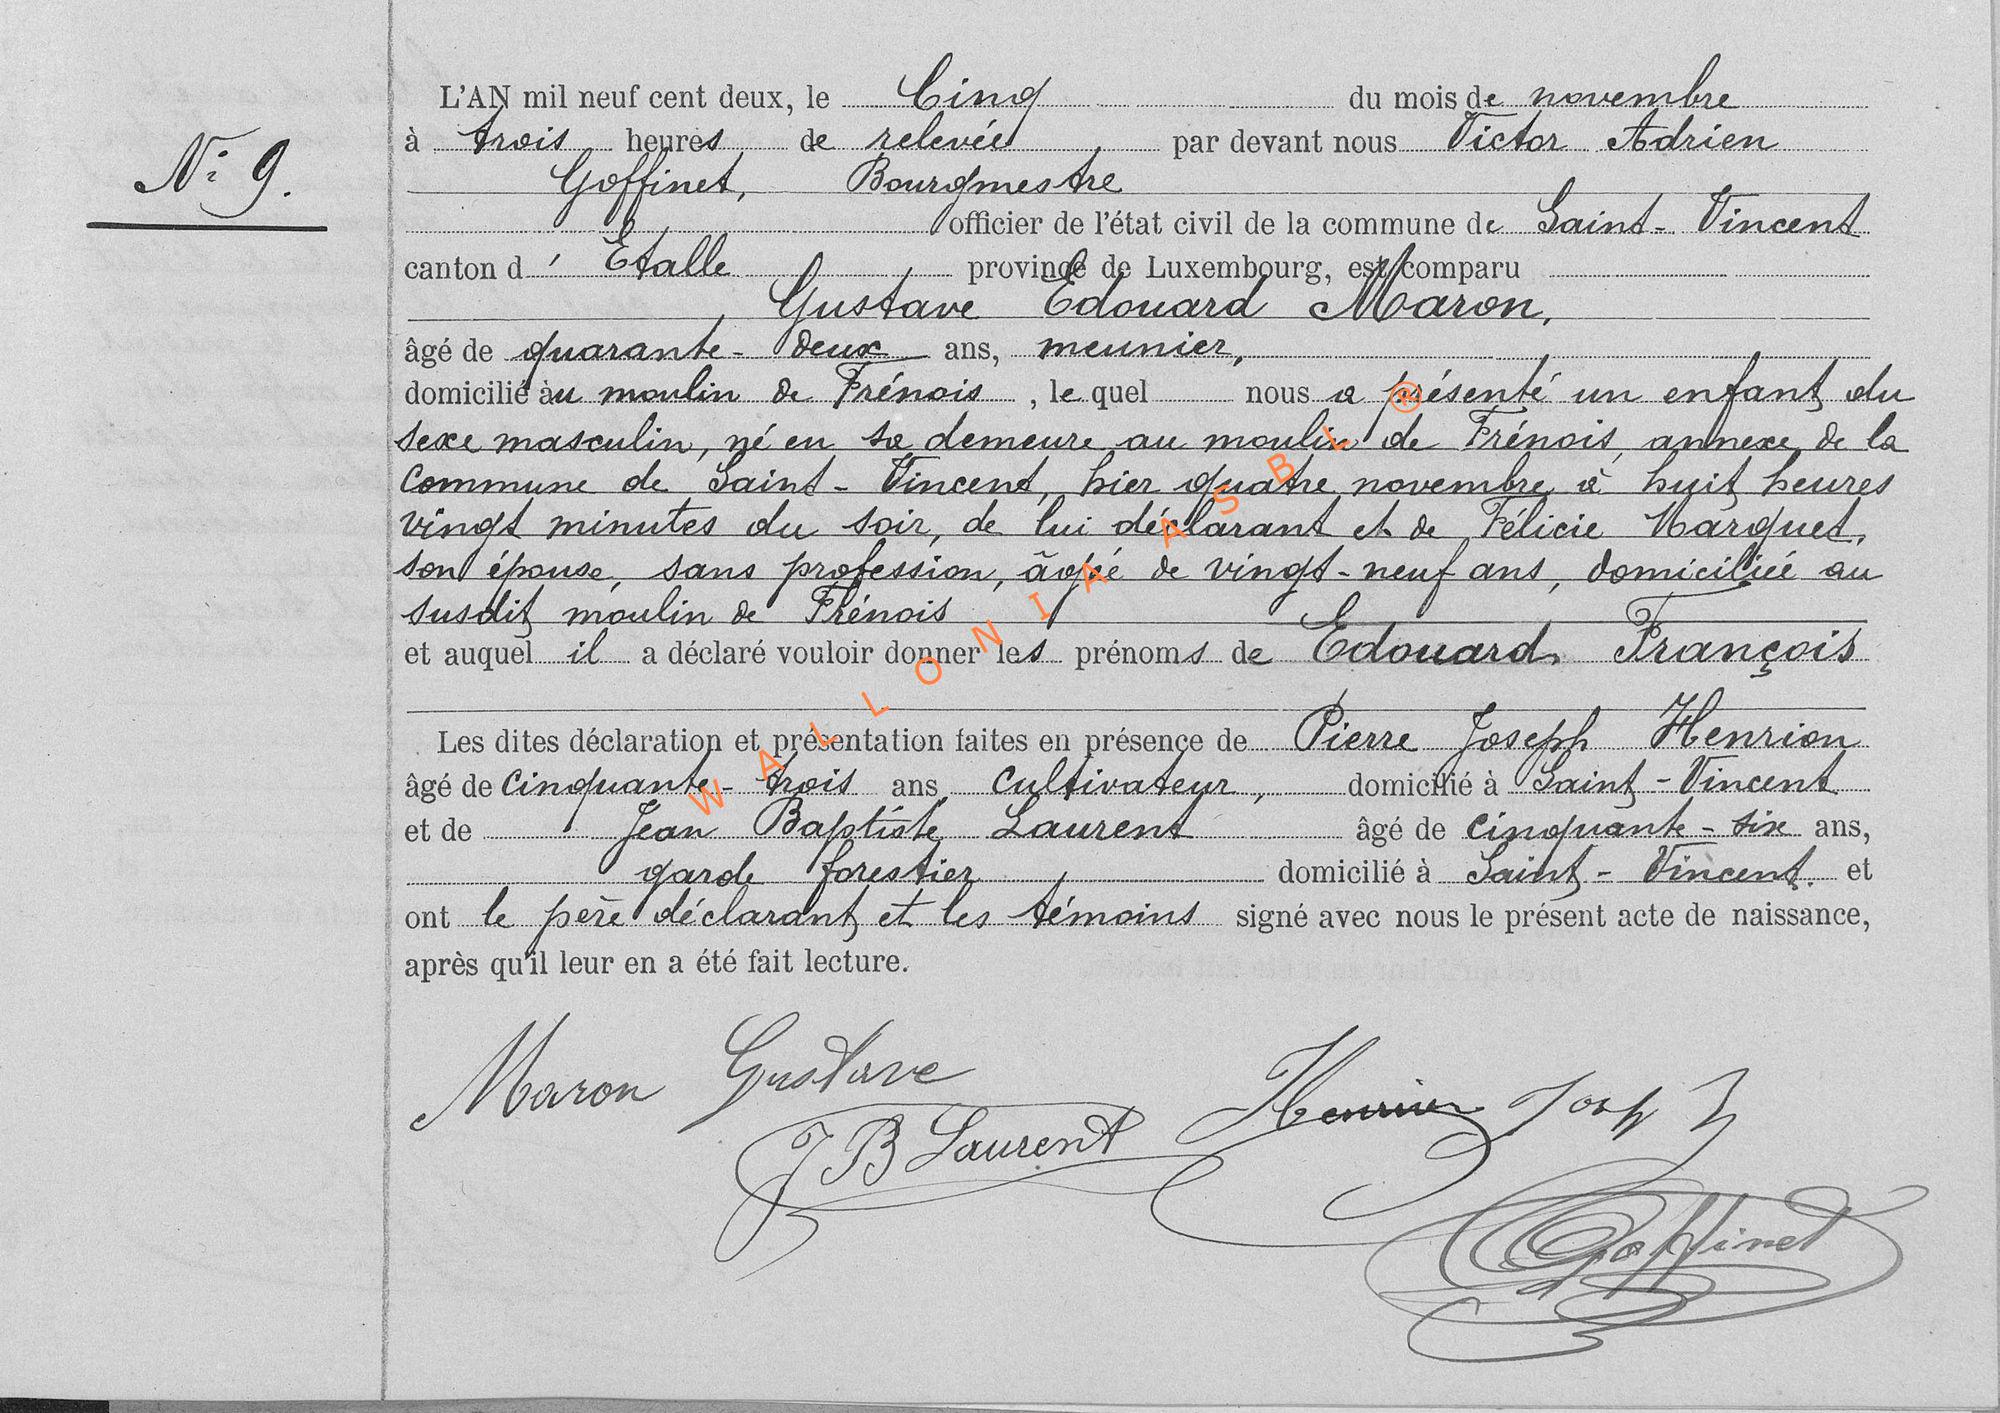 N° 9.
L'AN mil neuf cent deux, le Cinq du mois de novembre
à trois heures de relevée par devant nous Victor Adrien
Goffinet, Bourgmestre
officier de l'état civil de la commune de Saint-Vincent
canton d'Etalle province de Luxembourg, est comparu
Gustave Edouard Maron,
âgé de quarante-deux ans, meunier,
domicilié au moulin de Frénois, lequel nous a présenté un enfant du
sexe masculin, né en sa demeure au moulin de Frénois, annexe de la
commune de Saint-Vincent, hier quatre novembre à huit heures
vingt minutes du soir, de lui déclarant et de Félicie Marquet,
son épouse, sans profession, âgée de vingt-neuf ans, domiciliée au
susdit moulin de Frénois
et auquel il a déclaré vouloir donner les prénoms de Edouard François
Les dites déclaration et présentation faites en présence de Pierre Joseph Henrion
âgé de cinquante-trois ans cultivateur, domicilié à Saint-Vincent
et de Jean Baptiste Laurent âgé de cinquante-six ans,
garde forestier domicilié à Saint-Vincent. et
ont le père déclarant et les témoins signé avec nous le présent acte de naissance,
après qu'il leur en a été fait lecture.
Maron Gustave
JB Laurent Henrion
Goffinet
WALLONIA ASBL ®